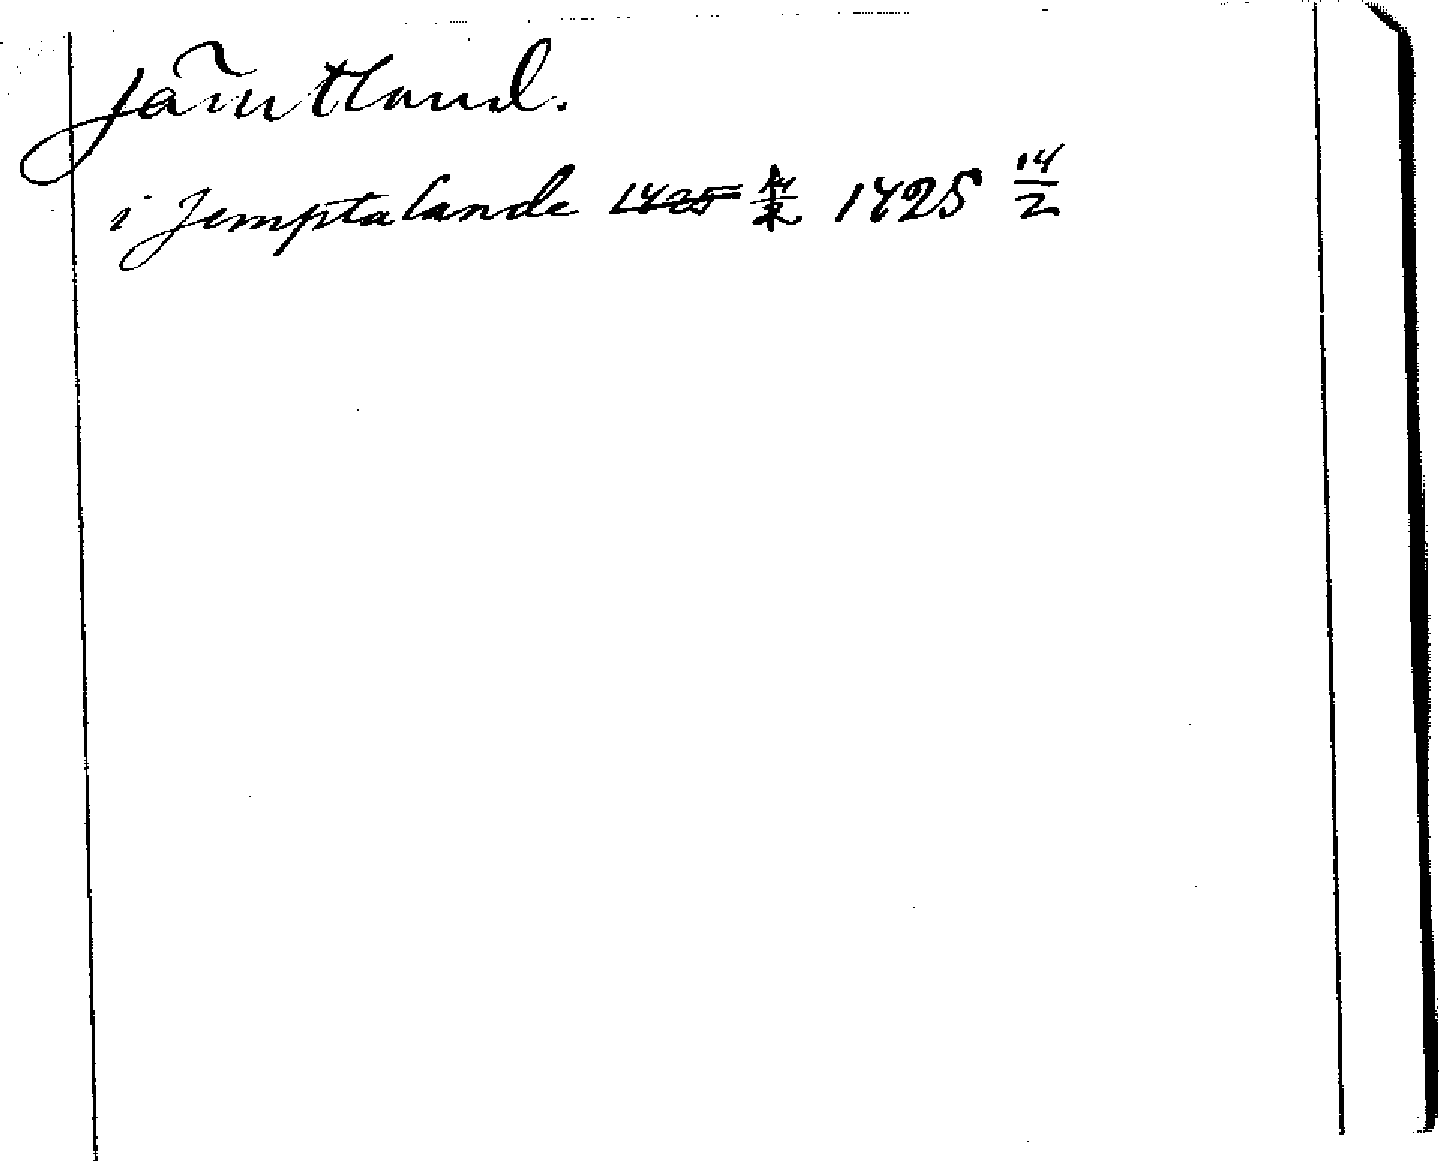 Jämtland.
i Jemptalande 1425 14/2 1425 14/2